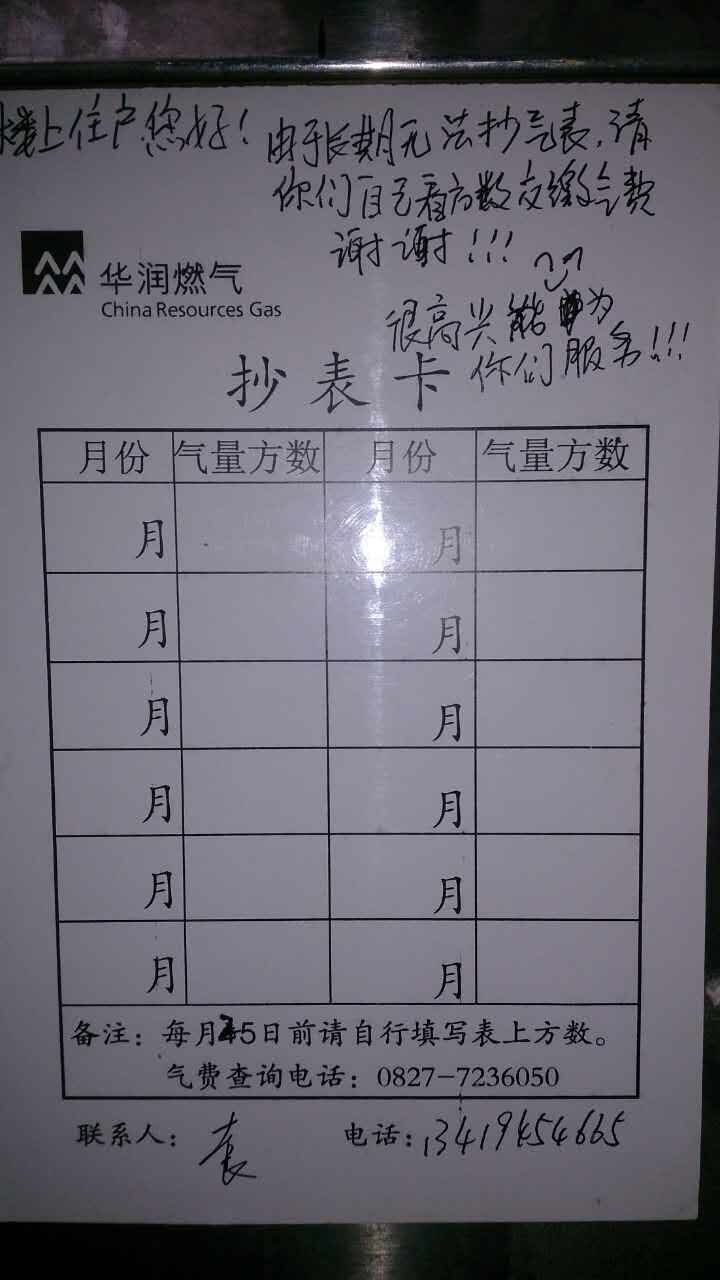 楼上住户您好！由于长期无法抄气表，请
你们自己看方数交缴气费
谢谢！！！
华润燃气
China Resources Gas
很高兴能为
你们服务！！！
抄表卡
月份 气量方数 月份 气量方数
月 月
月 月
月 月
月 月
月 月
月 月
备注：每月25日前请自行填写表上方数。
气费查询电话：0827-7236050
联系人：袁 电话：13419454665